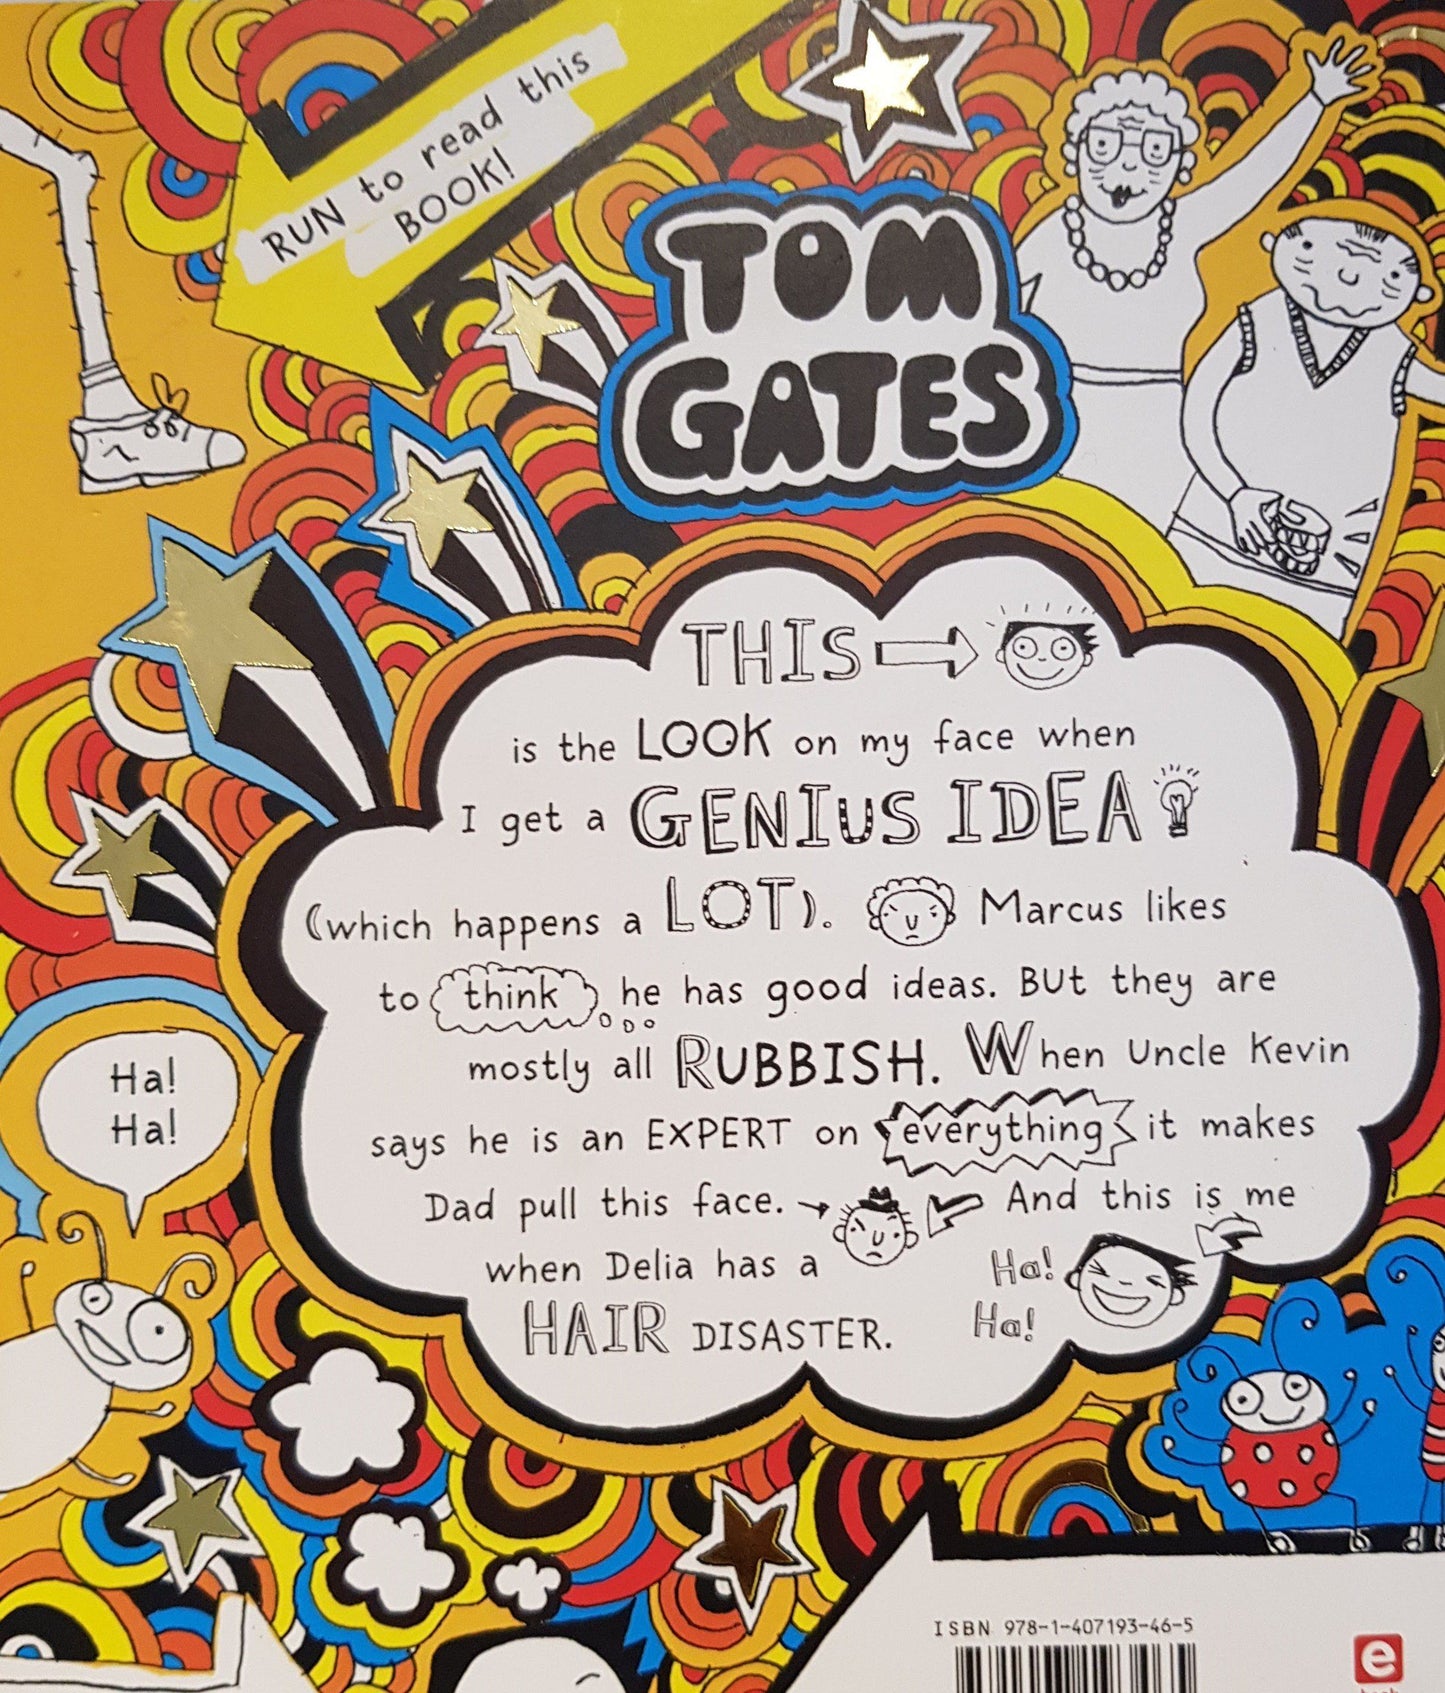 RUN to read this
BOOK!
TOM
GATES
THIS
is the LOOK on my face when
I get a GENIUS IDEA
(which happens a LOT). Marcus likes
to think he has good ideas. BUt they are
mostly all RUBBISH. When Uncle Kevin
says he is an EXPERT on everything it makes
Dad pull this face. And this is me
when Delia has a
HAIR DISASTER.
Ha!
Ha!
Ha!
Ha!
ISBN 978-1-407193-46-5
e